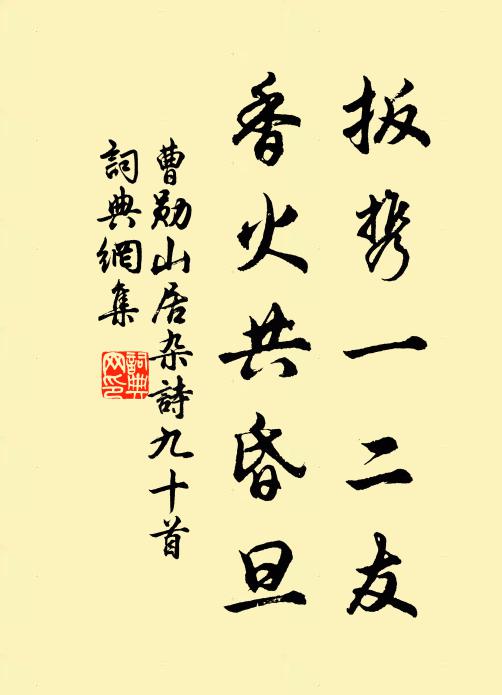 扳携一二友
香火共昏旦
曹勛山居杂詩九十首
詞典網集
詞典网印